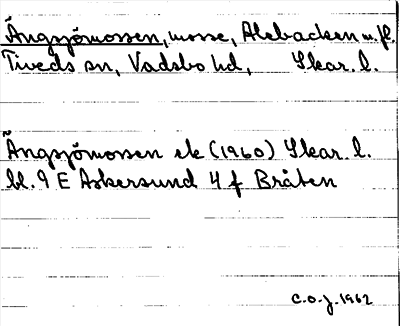 Ängsjömossen, mosse, Alebacken m.fl.
Tiveds sn, Vadsbo hd, Skar. l.
Ängsjömossen ek (1960) Skar. l.
bl. 9 E Askersund 4 f Bråten
C.O.J. 1962